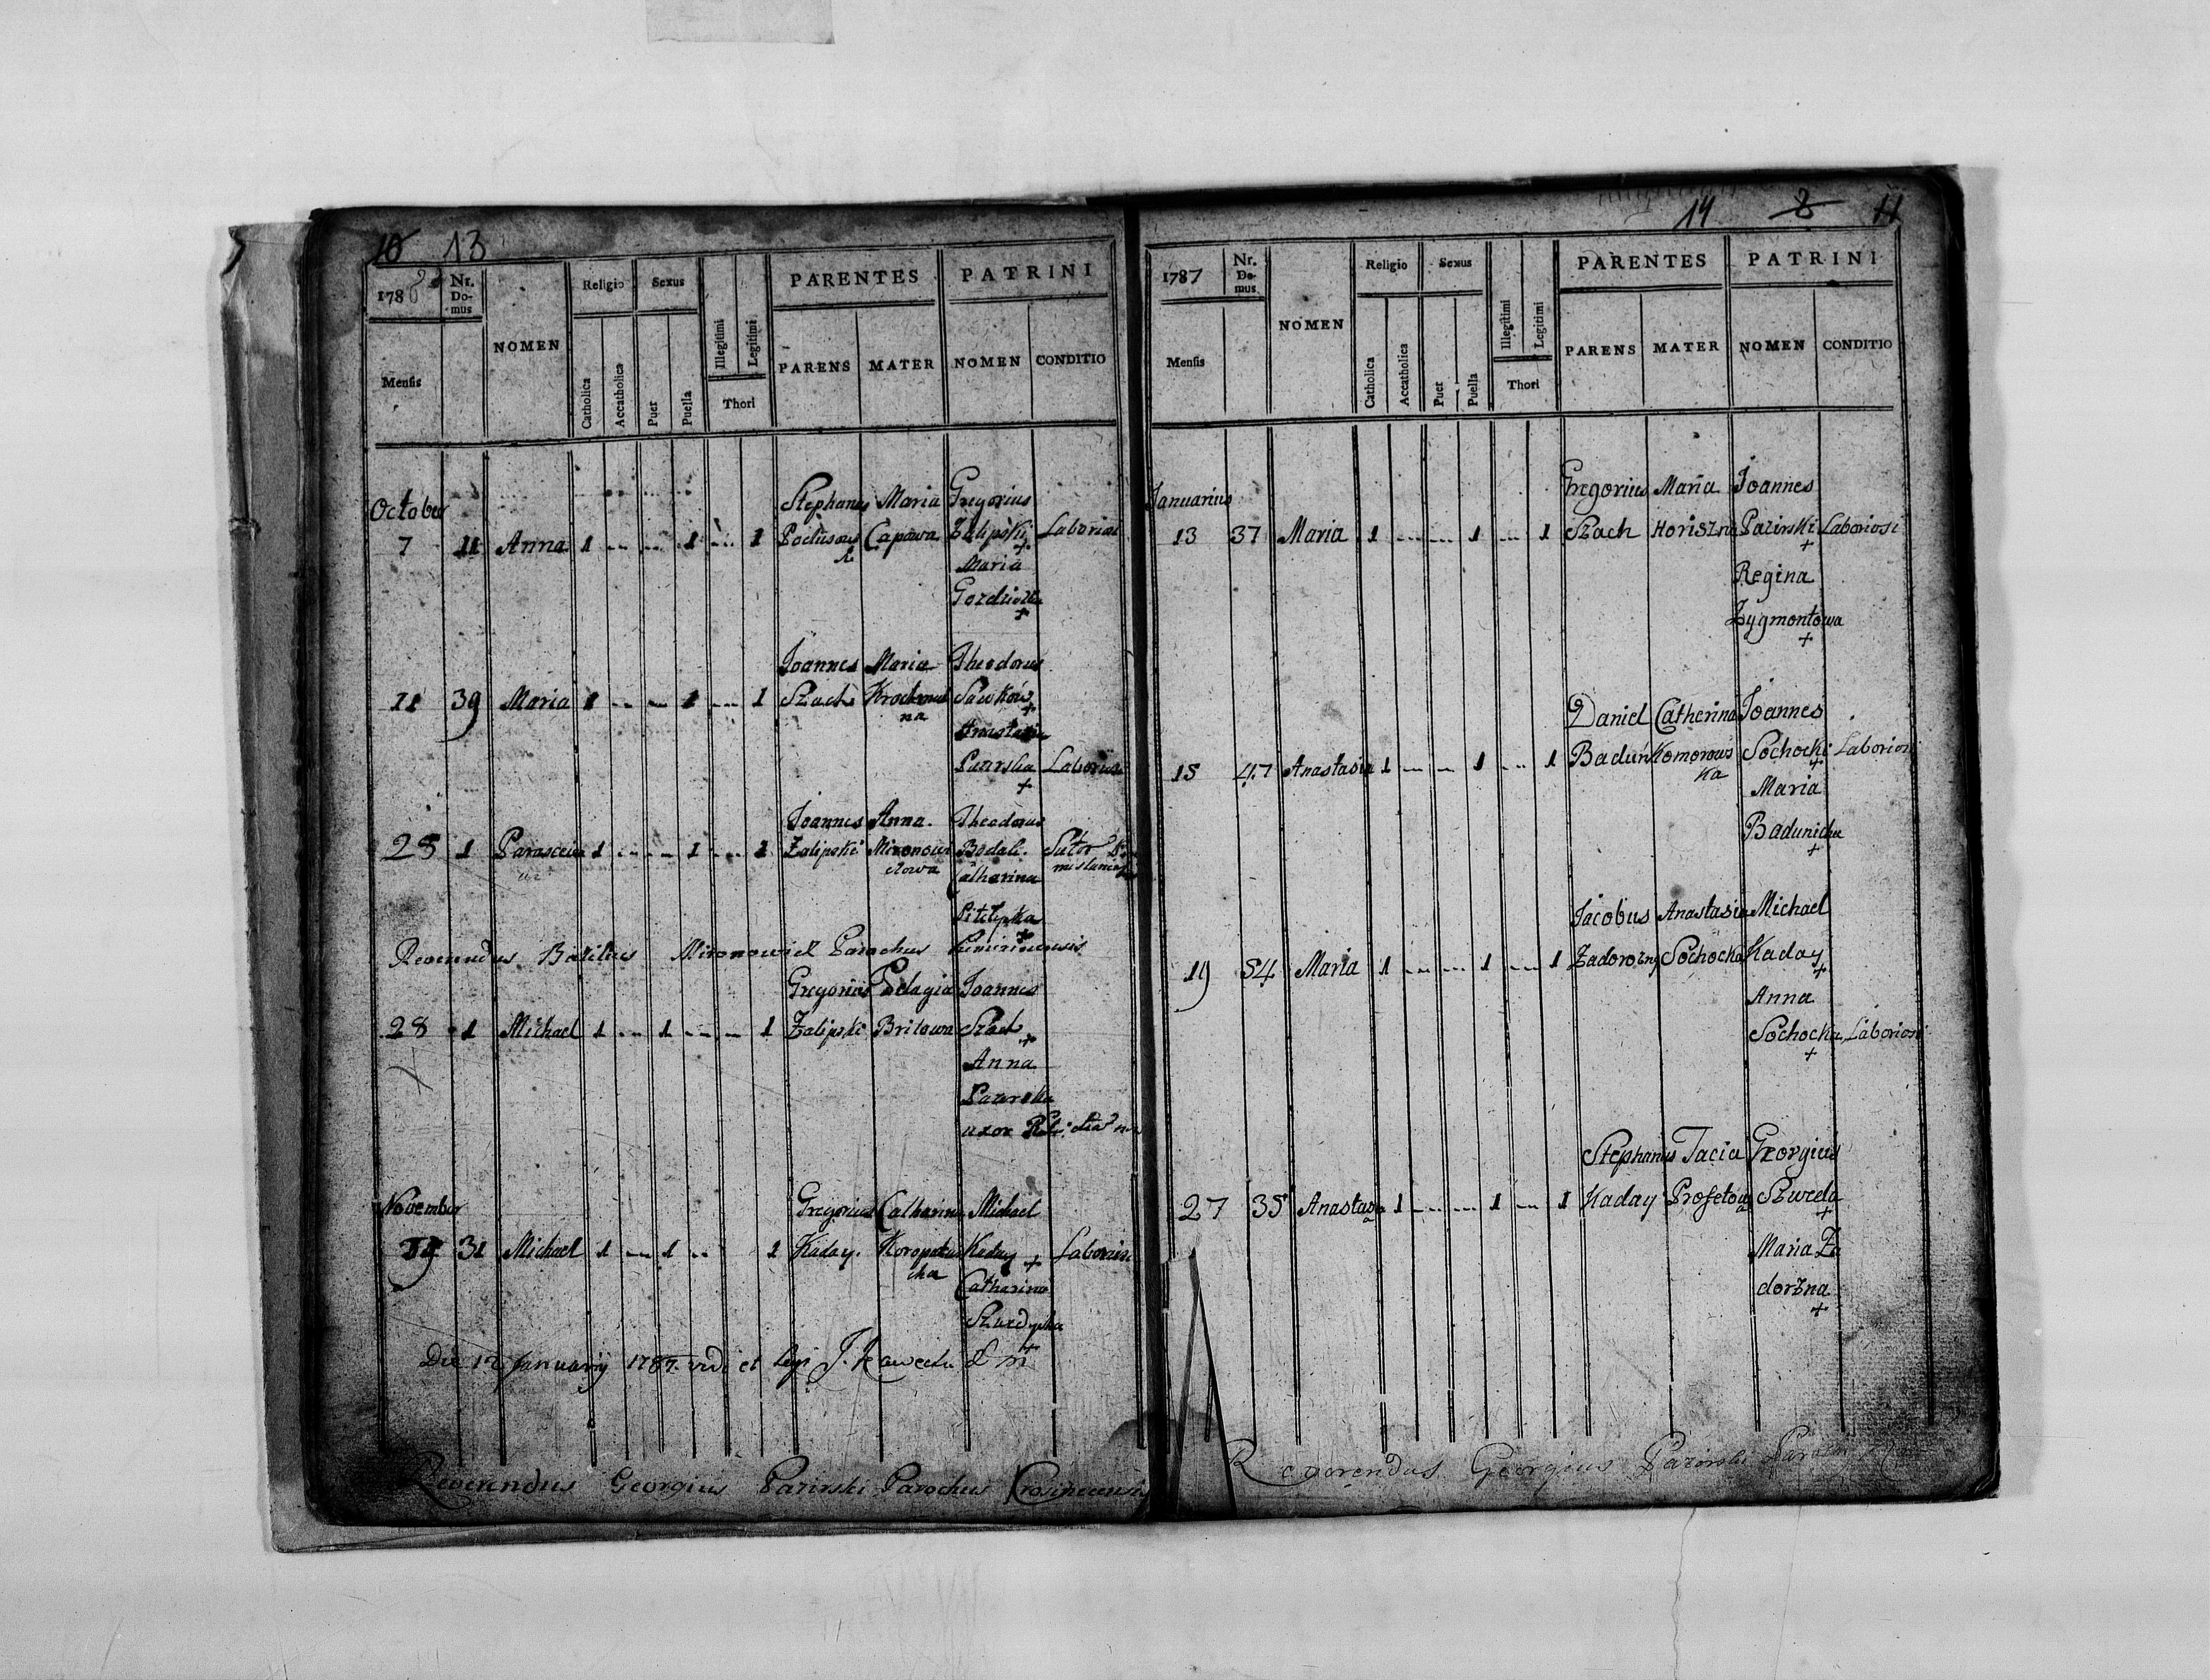 10 13
1786
Nr. Domus
NOMEN
Religio
Sexus
PARENTES
PATRINI
Mensis
Catholica
Accatholica
Puer
Puella
Illegitimi
Legitimi
Thori
PARENS
MATER
NOMEN
CONDITIO
Stephanus Maria Gregorius
October
7 11 Anna 1 1 1 Capowa Zalipski Laboriosi
+
Maria
+
Joannes Maria Theodorus
11 39 Maria 1 1 1 Szach Sawków
na +
Anastasia
Pazirska Laboriosi
+
Joannes Anna Theodorus
28 1 1 1 1 Zalipski Mironowi Sutor
czowa Catharina
+
Reverendus Basilius Mironowicz Parochus
Gregorius Pelagia Joannes
28 1 Michael 1 1 1 Zalipski Britowa Szach
+
Anna
Pazirska
uxor
November
Gregorius Catharina Michael
19 31 Michael 1 1 1 Kaday Kaday + Laboriosi
Catharina
+
Die 12 January 1787 vidi et legi J.
Reverendus Georgius Pazirski Parochus
14 8 11
1787
Nr. Domus
NOMEN
Religio
Sexus
PARENTES
PATRINI
Mensis
Catholica
Accatholica
Puer
Puella
Illegitimi
Legitimi
Thori
PARENS
MATER
NOMEN
CONDITIO
Gregorius Maria Joannes
Januarius
13 37 Maria 1 1 1 Szach Horiszna Pazirski Laboriosi
+
Regina
Zygmontowa
+
Daniel Catherina Joannes
15 47 Anastasia 1 1 1 Baduń Komorows Sochocki Laboriosi
ka +
Maria
Badunicha
+
Jacobus Anastasia Michael
19 54 Maria 1 1 1 Zadorozny Sochocka Kaday
+
Anna
Sochocka Laboriosi
+
Stephanus Tacia Georgius
27 35 Anastasia 1 1 1 Kaday Profetowa Szweda
+
Maria Za
dorzna
+
Reverendus Georgius Pazirski